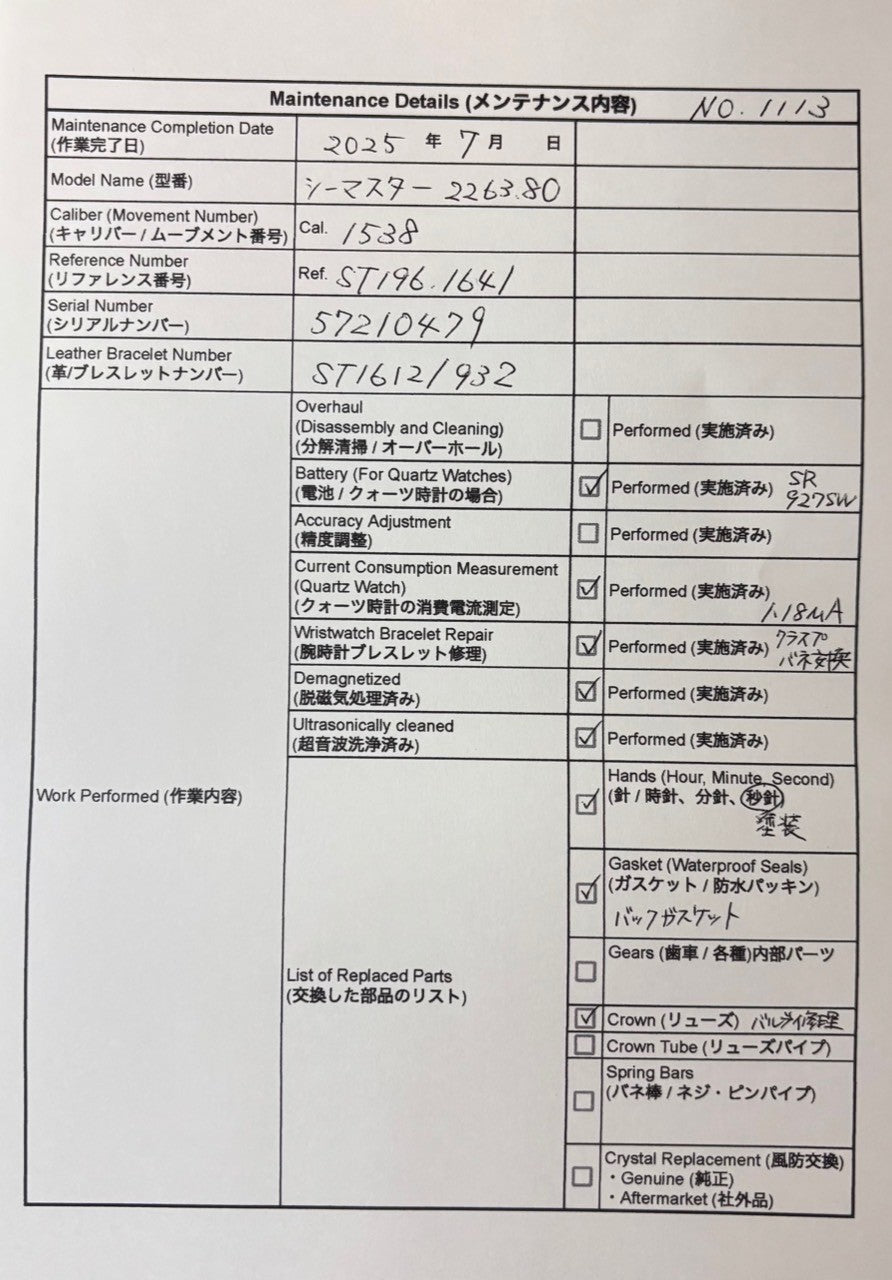 Maintenance Details (メンテナンス内容) NO. 1113
Maintenance Completion Date
(作業完了日)
2025 年 7 月 日
Model Name (型番)
シーマスター 2263.80
Caliber (Movement Number)
(キャリバー / ムーブメント番号)
Cal. 1538
Reference Number
(リファレンス番号)
Ref. ST196.1641
Serial Number
(シリアルナンバー)
57210479
Leather Bracelet Number
(革/ブレスレットナンバー)
ST1612/932
Work Performed (作業内容)
Overhaul
(Disassembly and Cleaning)
(分解清掃 / オーバーホール)
Performed (実施済み)
Battery (For Quartz Watches)
(電池 / クォーツ時計の場合)
Performed (実施済み) SR
927SW
Accuracy Adjustment
(精度調整)
Performed (実施済み)
Current Consumption Measurement
(Quartz Watch)
(クォーツ時計の消費電流測定)
Performed (実施済み)
1.18μA
Wristwatch Bracelet Repair
(腕時計ブレスレット修理)
Performed (実施済み) クラスプ
バネ交換
Demagnetized
(脱磁気処理済み)
Performed (実施済み)
Ultrasonically cleaned
(超音波洗浄済み)
Performed (実施済み)
List of Replaced Parts
(交換した部品のリスト)
Hands (Hour, Minute, Second)
(針 / 時針、分針、秒針)
塗装
Gasket (Waterproof Seals)
(ガスケット / 防水パッキン)
バックガスケット
Gears (歯車 / 各種)内部パーツ
Crown (リューズ) 修理
Crown Tube (リューズパイプ)
Spring Bars
(バネ棒 / ネジ・ピンパイプ)
Crystal Replacement (風防交換)
・Genuine (純正)
・Aftermarket (社外品)